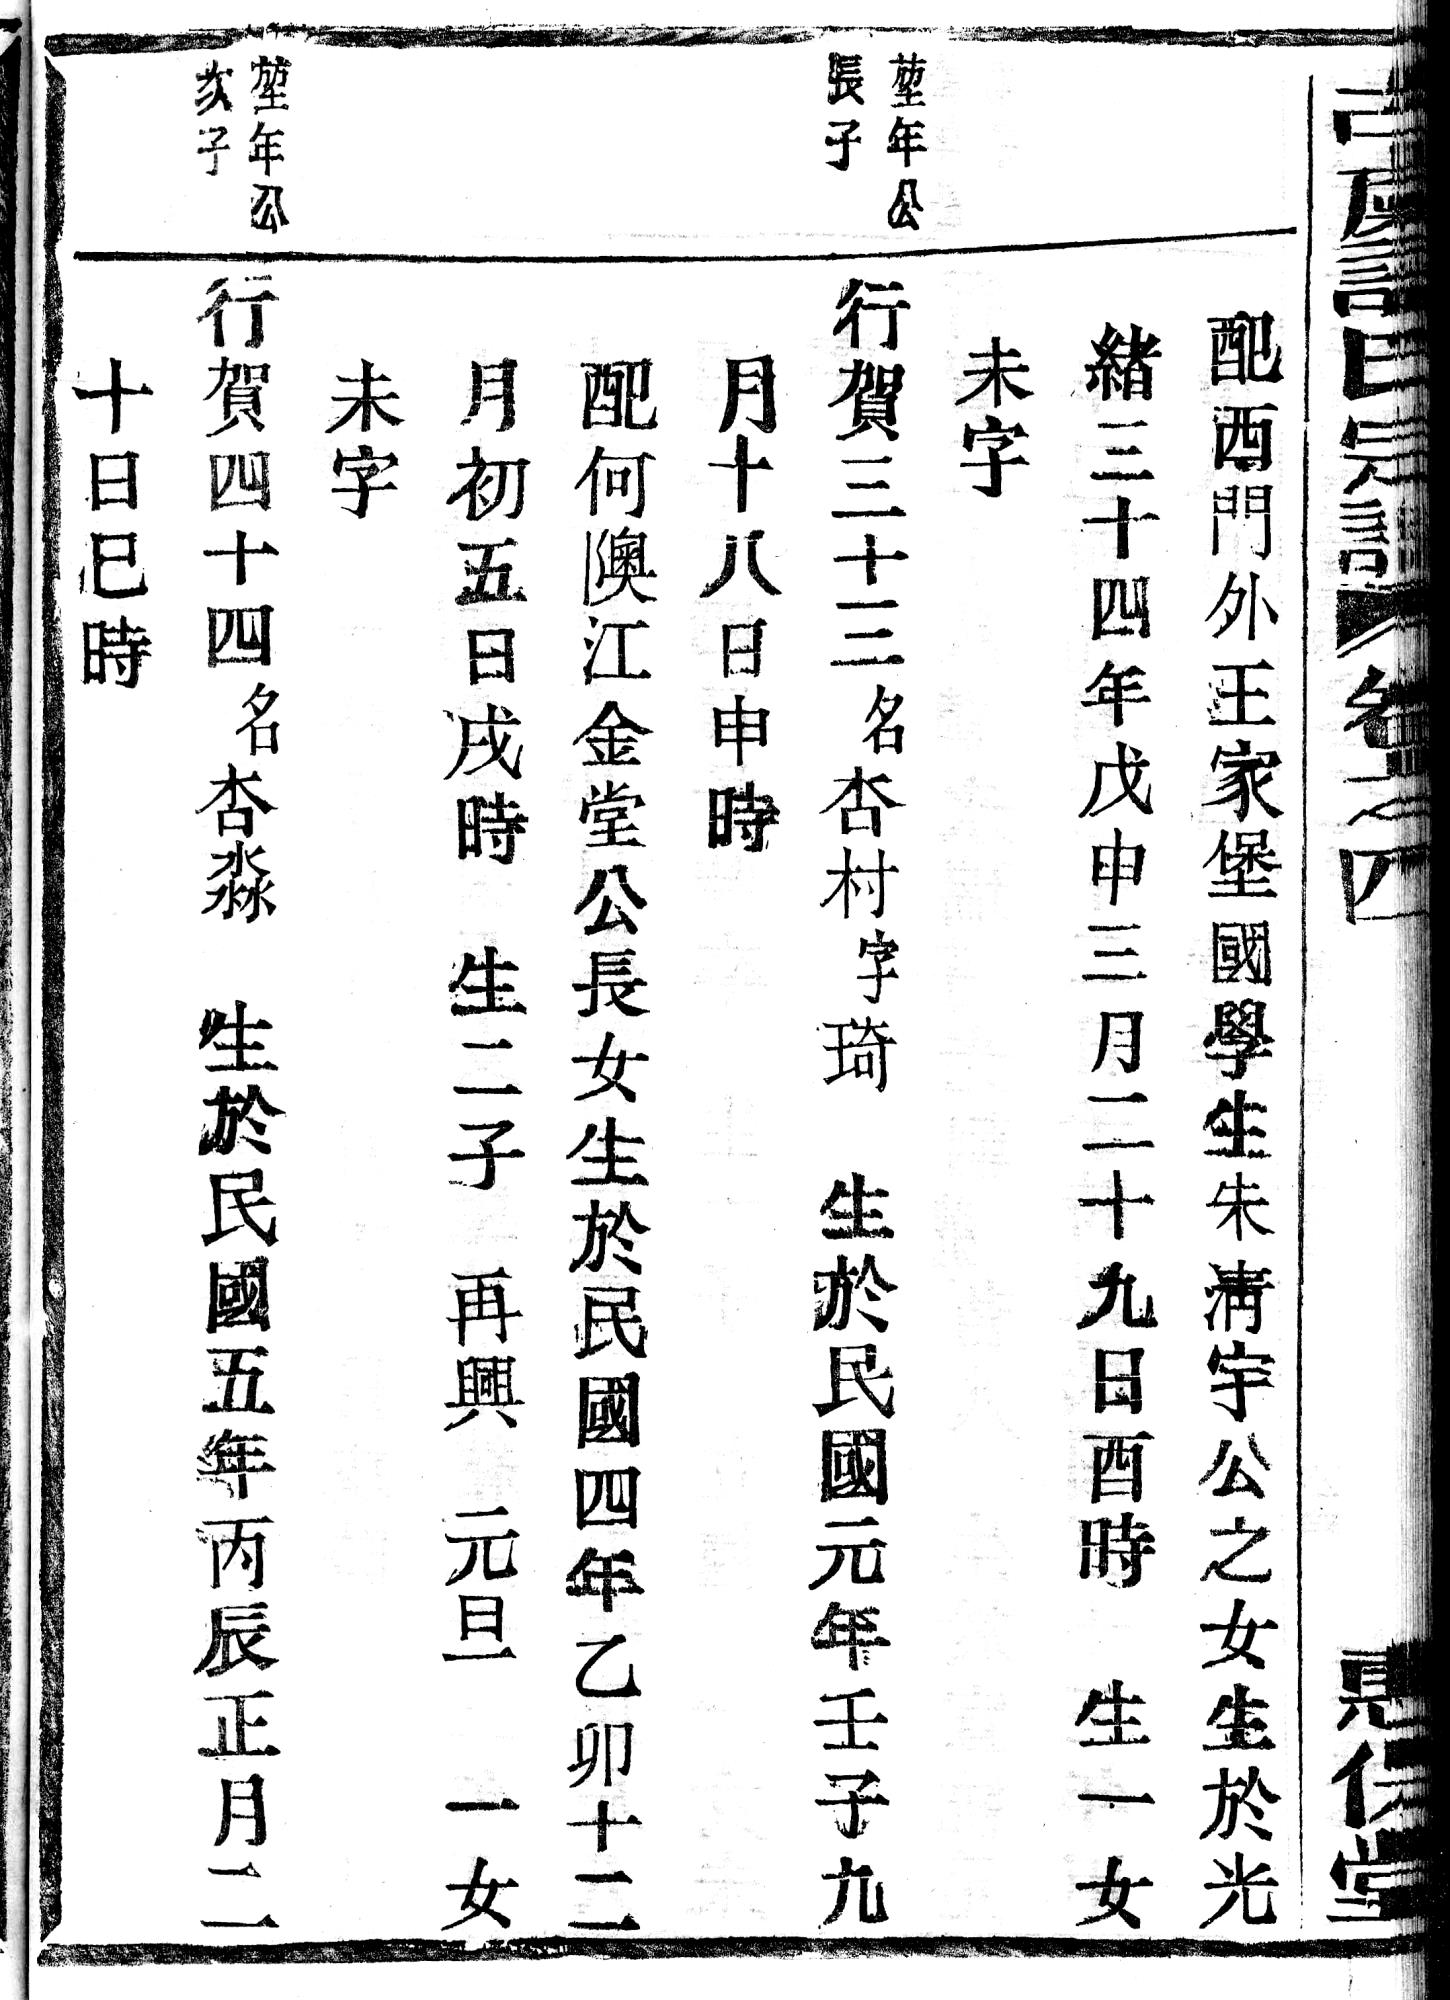 卷之四
堂
配西門外王家堡國學生朱淸宇公之女生於光
緒三十四年戊申三月二十九日酉時　生一女
未字
堃年公
長子
行賀三十三名杏村字琦　生於民國元年壬子九
月十八日申時
配何隩江金堂公長女生於民國四年乙卯十二
月初五日戌時　生二子　再興　元旦　一女
未字
堃年公
次子
行賀四十四名杏淼　生於民國五年丙辰正月二
十日巳時